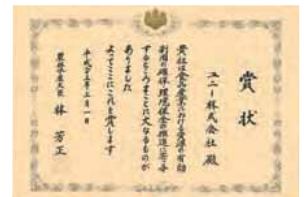 賞状
ユニー株式会社 殿
貴社は食品産業における資源の有効
利用の確保、環境保全の推進に寄与
するところまことに大なるものが
ありました
よってここにこれを賞します
平成二十五年三月一日
農林水産大臣 林 芳正